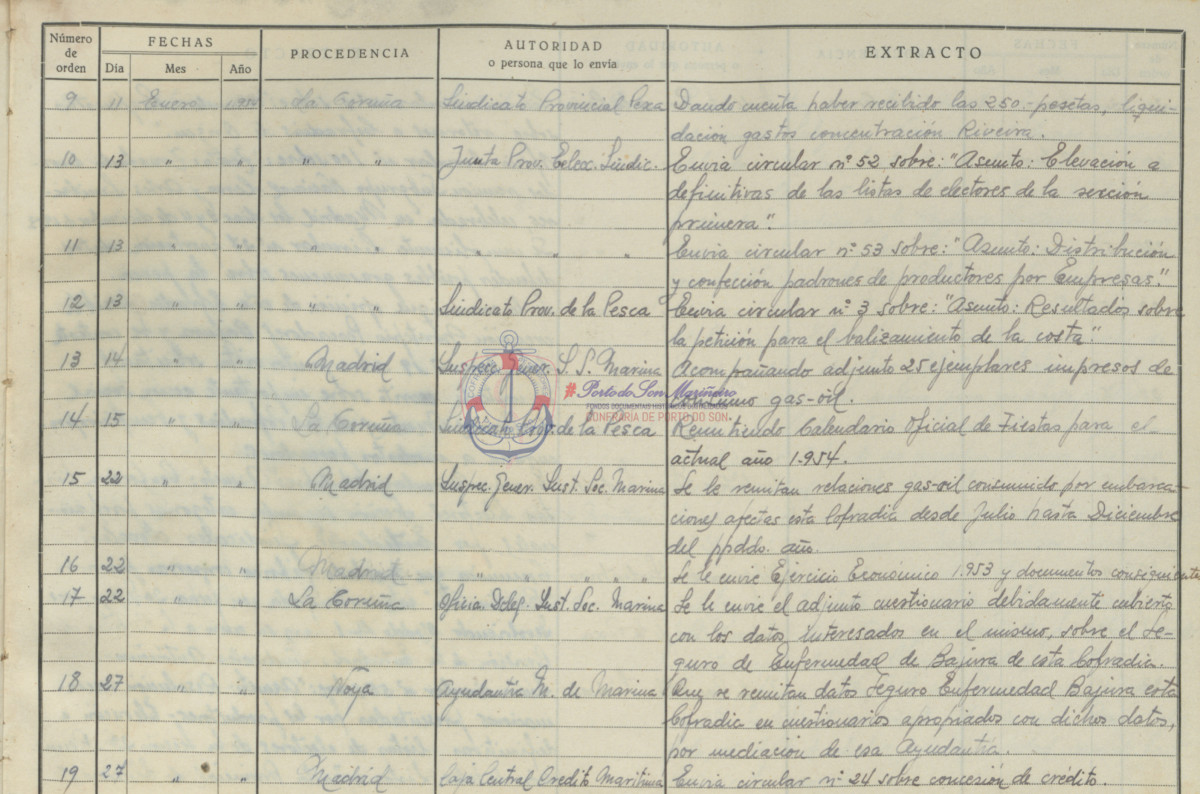 Número de orden FECHAS PROCEDENCIA AUTORIDAD o persona que lo envía EXTRACTO
Dia Mes Año
9 11 Enero 1.954 La Coruña Sindicato Provincial Pesca Dando cuenta haber recibido las 250.- pesetas, liqui-
dación gastos concentración Riveira.
10 13 " " " " Junta Prov. Elecc. Sindic. Envia circular nº 52 sobre: "Asunto: Elevación a
definitivas de las listas de electores de la sección
primera".
11 13 " " " " " " " Envia circular nº 53 sobre: "Asunto: Distribución
y confección padrones de productores por Empresas."
12 13 " " " " Sindicato Prov. de la Pesca Envia circular nº 3 sobre: "Asunto: Resultados sobre
la petición para el balizamiento de la costa".
13 14 " " Madrid Inspec. Gener. S. S. Marina Acompañando adjunto 25 ejemplares impresos de
consumo gas-oil.
#Porto do Son Mariñeiro
FONDOS DOCUMENTAIS HISTÓRICOS DIXITALIZADOS
CONFRARÍA DE PORTO DO SON
14 15 " " La Coruña Sindicato Prov. de la Pesca Remitiendo Calendario Oficial de Fiestas para el
actual año 1.954.
15 22 " " Madrid Inspec. Gener. Inst. Soc. Marina Se le remitan relaciones gas-oil consumido por embarca-
ciones afectas esta Cofradia desde Julio hasta Diciembre
del ppddo. año.
16 22 " " Madrid " " " " " Se le envie Ejercicio Económico 1.953 y documentos consiguiente
17 22 " " La Coruña Oficia. Deleg. Inst. Soc. Marina Se le envie el adjunto cuestionario debidamente cubierto
con los datos interesados en el mismo, sobre el Se-
guro de Enfermedad de Bajura de esta Cofradia.
18 27 " " Noya Ayudantia M. de Marina Que se remitan datos Seguro Enfermedad Bajura esta
Cofradia en cuestionarios apropiados con dichos datos,
por mediación de esa Ayudantía.
19 27 " " Madrid Caja Central Credito Maritima Envia circular nº 24 sobre concesión de crédito.